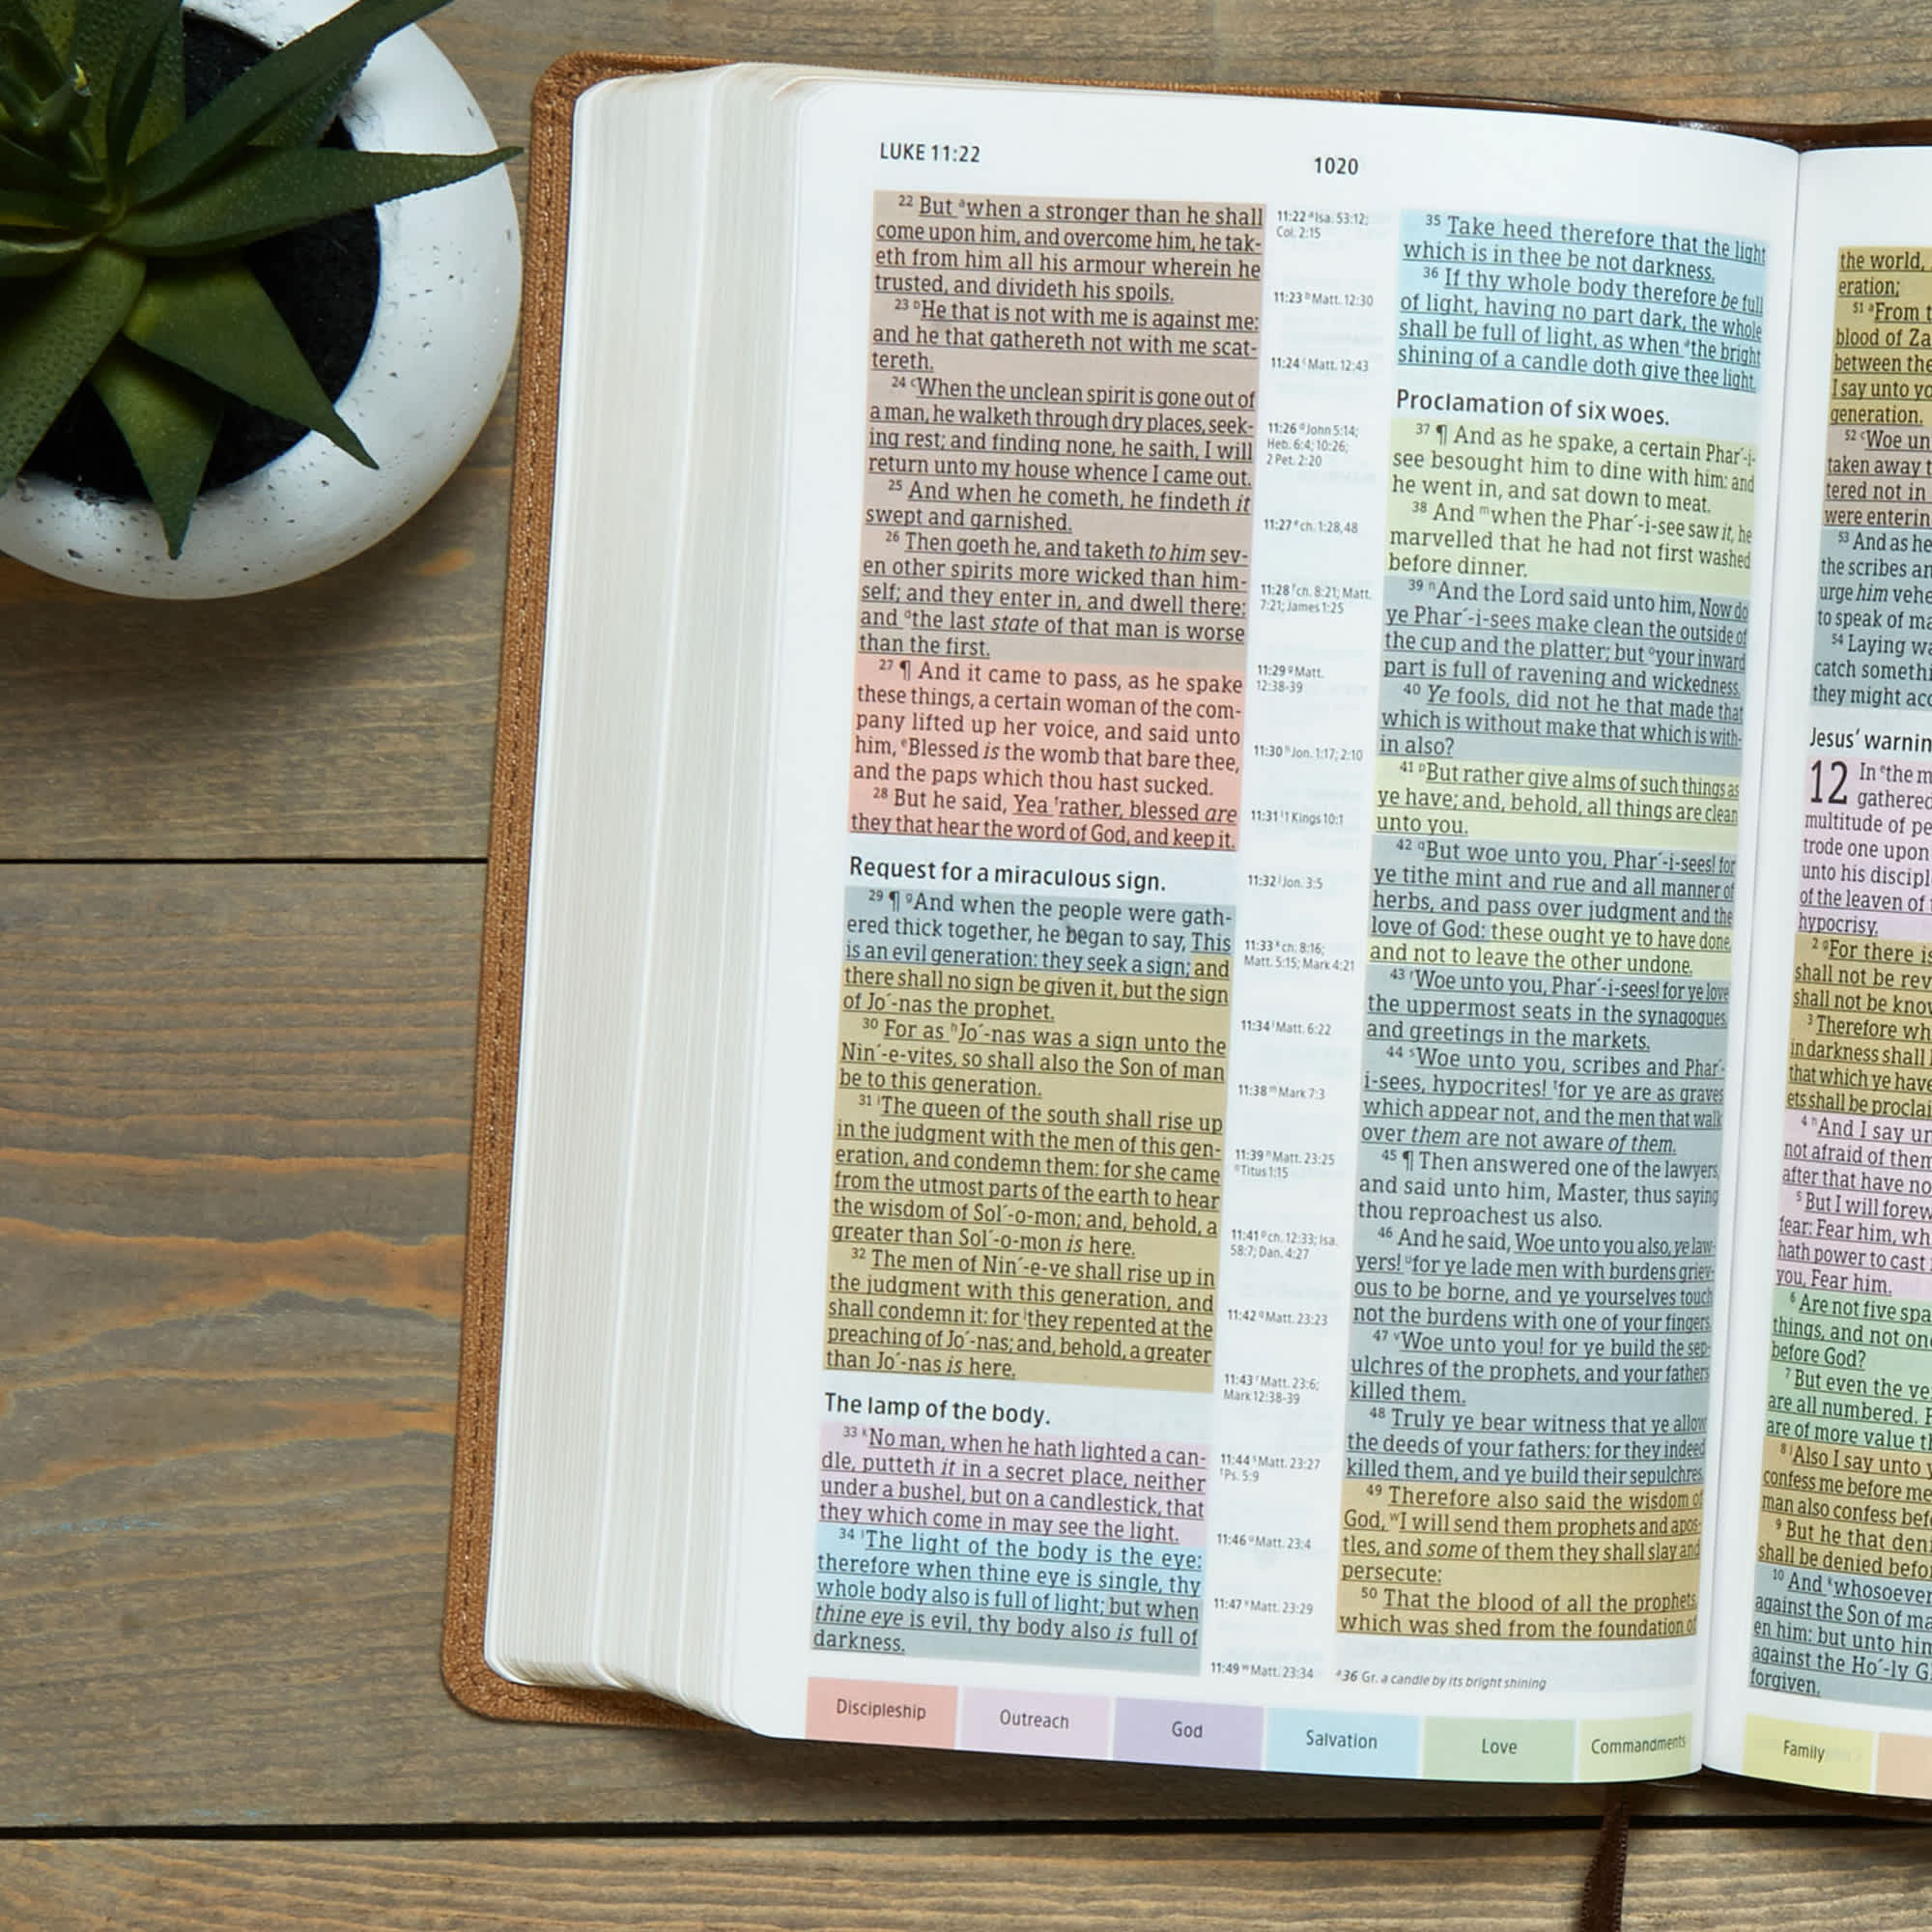 LUKE 11:22
1020
22 But ᵃwhen a stronger than he shall
come upon him, and overcome him, he tak-
eth from him all his armour wherein he
trusted, and divideth his spoils.
23 ᵇHe that is not with me is against me:
and he that gathereth not with me scat-
tereth.
24 ᶜWhen the unclean spirit is gone out of
a man, he walketh through dry places, seek-
ing rest; and finding none, he saith, I will
return unto my house whence I came out.
25 And when he cometh, he findeth it
swept and garnished.
26 Then goeth he, and taketh to him sev-
en other spirits more wicked than him-
self; and they enter in, and dwell there:
and ᵈthe last state of that man is worse
than the first.
27 ¶ And it came to pass, as he spake
these things, a certain woman of the com-
pany lifted up her voice, and said unto
him, ᵉBlessed is the womb that bare thee,
and the paps which thou hast sucked.
28 But he said, Yea ᶠrather, blessed are
they that hear the word of God, and keep it.
Request for a miraculous sign.
29 ¶ ᵍAnd when the people were gath-
ered thick together, he began to say, This
is an evil generation: they seek a sign; and
there shall no sign be given it, but the sign
of Jo´-nas the prophet.
30 For as ʰJo´-nas was a sign unto the
Nin´-e-vites, so shall also the Son of man
be to this generation.
31 ⁱThe queen of the south shall rise up
in the judgment with the men of this gen-
eration, and condemn them: for she came
from the utmost parts of the earth to hear
the wisdom of Sol´-o-mon; and, behold, a
greater than Sol´-o-mon is here.
32 The men of Nin´-e-ve shall rise up in
the judgment with this generation, and
shall condemn it: for ʲthey repented at the
preaching of Jo´-nas; and, behold, a greater
than Jo´-nas is here.
The lamp of the body.
33 ᵏNo man, when he hath lighted a can-
dle, putteth it in a secret place, neither
under a bushel, but on a candlestick, that
they which come in may see the light.
34 ˡThe light of the body is the eye:
therefore when thine eye is single, thy
whole body also is full of light; but when
thine eye is evil, thy body also is full of
darkness.
11:22 ᵃIsa. 53:12;
Col. 2:15
11:23 ᵇMatt. 12:30
11:24 ᶜMatt. 12:43
11:26 ᵈJohn 5:14;
Heb. 6:4; 10:26;
2 Pet. 2:20
11:27 ᵉch. 1:28,48
11:28 ᶠch. 8:21; Matt.
7:21; James 1:25
11:29 ᵍMatt.
12:38-39
11:30 ʰJon. 1:17; 2:10
11:31 ⁱ1 Kings 10:1
11:32 ʲJon. 3:5
11:33 ᵏch. 8:16;
Matt. 5:15; Mark 4:21
11:34 ˡMatt. 6:22
11:38 ᵐMark 7:3
11:39 ⁿMatt. 23:25
ᵒTitus 1:15
11:41 ᵖch. 12:33; Isa.
58:7; Dan. 4:27
11:42 qMatt. 23:23
11:43 ʳMatt. 23:6;
Mark 12:38-39
11:44 ˢMatt. 23:27
ᵗPs. 5:9
11:46 ᵘMatt. 23:4
11:47 ᵛMatt. 23:29
11:49 ʷMatt. 23:34
35 Take heed therefore that the light
which is in thee be not darkness.
36 If thy whole body therefore be full
of light, having no part dark, the whole
shall be full of light, as when ᵃthe bright
shining of a candle doth give thee light.
Proclamation of six woes.
37 ¶ And as he spake, a certain Phar´-i-
see besought him to dine with him: and
he went in, and sat down to meat.
38 And ᵐwhen the Phar´-i-see saw it, he
marvelled that he had not first washed
before dinner.
39 ⁿAnd the Lord said unto him, Now do
ye Phar´-i-sees make clean the outside of
the cup and the platter; but ᵒyour inward
part is full of ravening and wickedness.
40 Ye fools, did not he that made that
which is without make that which is with-
in also?
41 ᵖBut rather give alms of such things as
ye have; and, behold, all things are clean
unto you.
42 qBut woe unto you, Phar´-i-sees! for
ye tithe mint and rue and all manner of
herbs, and pass over judgment and the
love of God: these ought ye to have done,
and not to leave the other undone.
43 ʳWoe unto you, Phar´-i-sees! for ye love
the uppermost seats in the synagogues,
and greetings in the markets.
44 ˢWoe unto you, scribes and Phar´-
i-sees, hypocrites! ᵗfor ye are as graves
which appear not, and the men that walk
over them are not aware of them.
45 ¶ Then answered one of the lawyers,
and said unto him, Master, thus saying
thou reproachest us also.
46 And he said, Woe unto you also, ye law-
yers! ᵘfor ye lade men with burdens griev-
ous to be borne, and ye yourselves touch
not the burdens with one of your fingers.
47 ᵛWoe unto you! for ye build the sep-
ulchres of the prophets, and your fathers
killed them.
48 Truly ye bear witness that ye allow
the deeds of your fathers: for they indeed
killed them, and ye build their sepulchres.
49 Therefore also said the wisdom of
God, ʷI will send them prophets and apos-
tles, and some of them they shall slay and
persecute:
50 That the blood of all the prophets,
which was shed from the foundation of
ᵃ36 Gr. a candle by its bright shining
Discipleship
Outreach
God
Salvation
Love
Commandments
the world,
eration;
51 ᵃFrom
blood of Za
between the
I say unto yo
generation.
52 ᶜWoe un
taken away
tered not in
were enterin
53 And as he
the scribes an
urge him vehe
to speak of ma
54 Laying wa
catch somethi
they might acc
Jesus' warnin
12 In ᵉthe m
gathered
multitude of pe
trode one upon
unto his discipl
of the leaven of
hypocrisy.
2 ᵍFor there is
shall not be rev
shall not be know
3 Therefore wh
in darkness shall
that which ye have
ets shall be proclai
4 ʰAnd I say un
not afraid of them
after that have no
5 But I will forew
fear: Fear him, wh
hath power to cast
you, Fear him.
6 Are not five spa
things, and not one
before God?
7 But even the ve
are all numbered. F
are of more value th
8 ʲAlso I say unto
confess me before me
man also confess befo
9 But he that den
shall be denied befo
10 And ᵏwhosoever
against the Son of ma
en him: but unto him
against the Ho´-ly G
forgiven.
Family